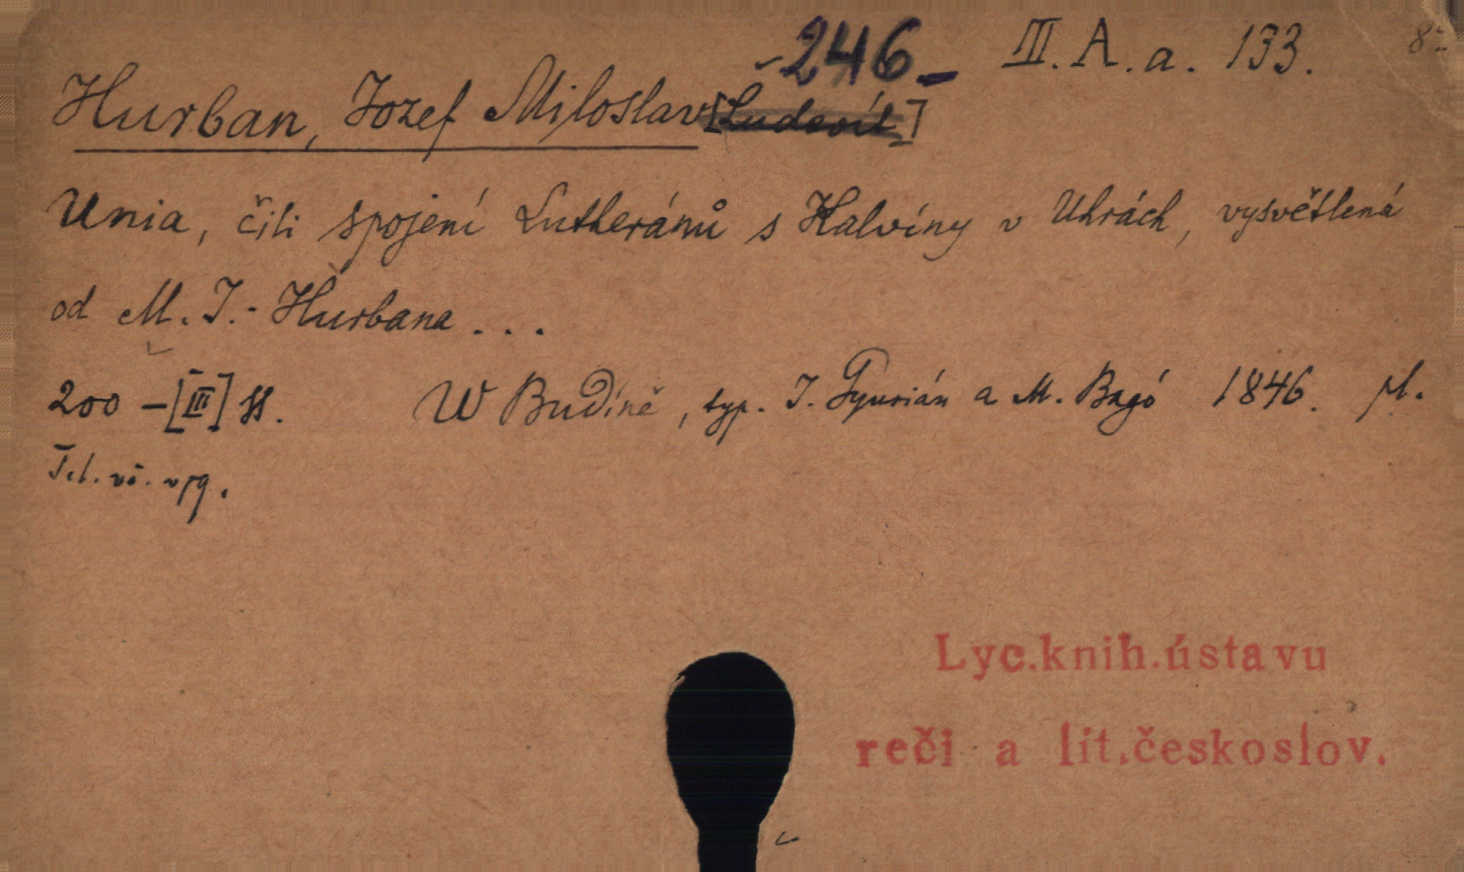 -246- III. A. a. 133. 8°
Hurban, Jozef Miloslav [Ľudevít]
Unia, čili spojení Lutheránů s Kalvíny v Uhrách, vysvětlená
od M. J. Hurbana . . .
200 - [III] ss. W Budíně, typ. J. Gyurián a M. Bagó 1846. pl.
Lyc.knih.ústavu
reči a lit.českoslov.